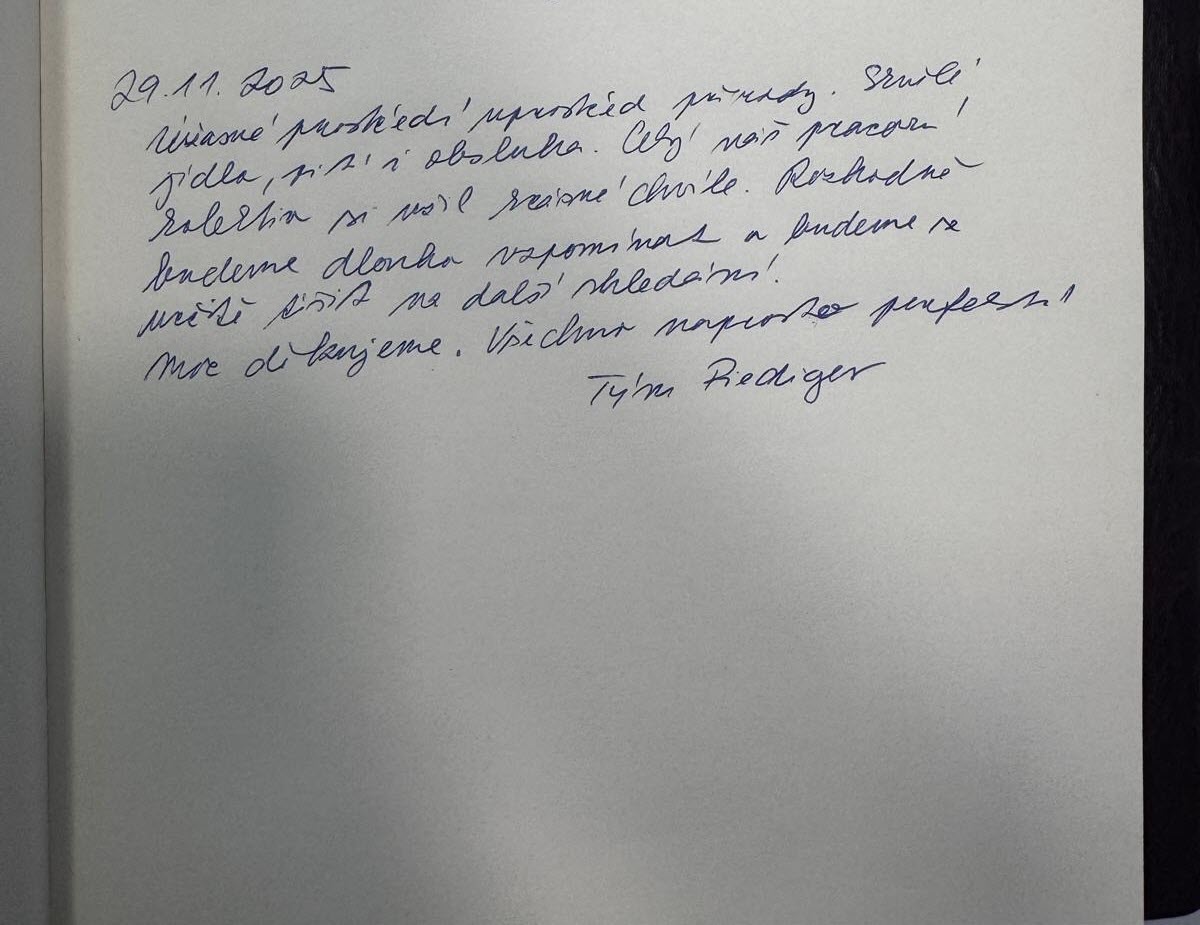 29.11.2025
Úžasné prostředí uprostřed přírody. Skvělé
jídlo, pití i obsluha. Celý náš pracovní
kolektiv si užil krásné chvíle. Rozhodně
budeme dlouho vzpomínat a budeme se
určitě těšit na další shledání.
Moc děkujeme. Všechno naprosto perfektní
Tým Riediger